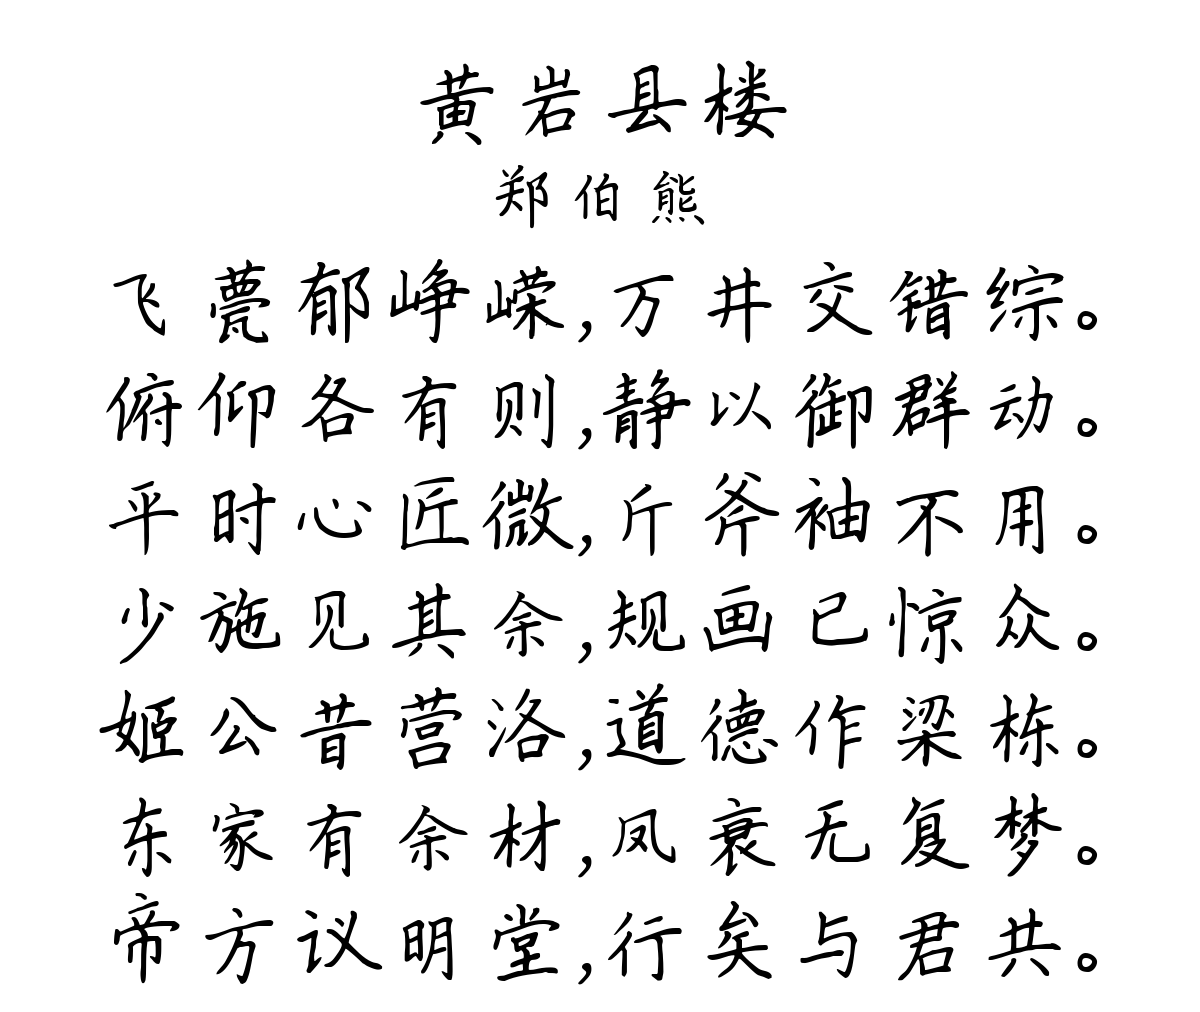 黄岩县楼
郑伯熊
飞甍郁峥嵘,万井交错综。
俯仰各有则,静以御群动。
平时心匠微,斤斧袖不用。
少施见其余,规画已惊众。
姬公昔营洛,道德作梁栋。
东家有余材,凤衰无复梦。
帝方议明堂,行矣与君共。